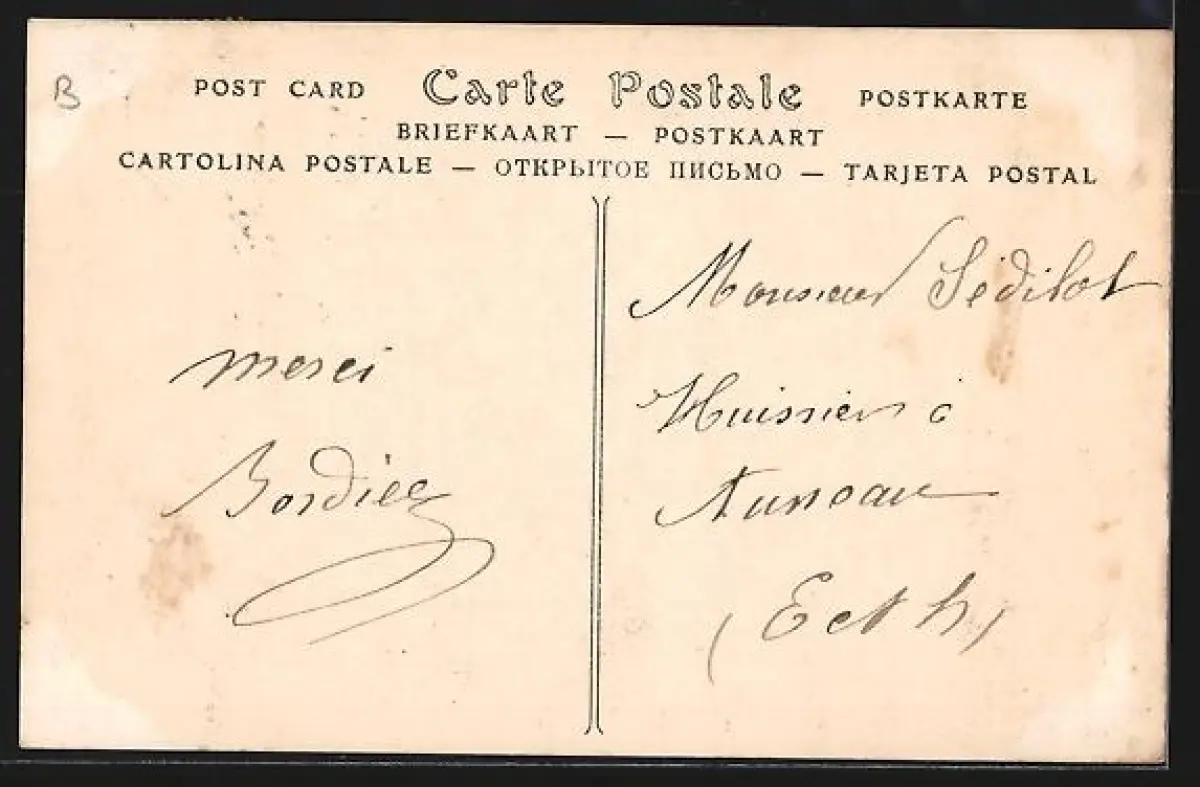 B
POST CARD Carte Postale POSTKARTE
BRIEFKAART — POSTKAART
CARTOLINA POSTALE — ОТКРЫТОЕ ПИСЬМО — TARJETA POSTAL
merci
Bordier
Monsieur Sédilot
Huissier à
Auneau
(E et L)